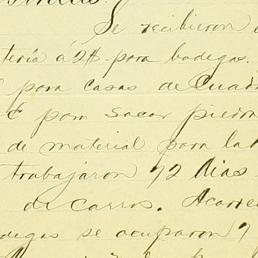 Se recibieron
tería á 2$ para bodegas.
para casas de Cuad
para sacar piedra
de material para la
trabajaron 72 dias
de carros. Acarre
degas se ocuparon 9